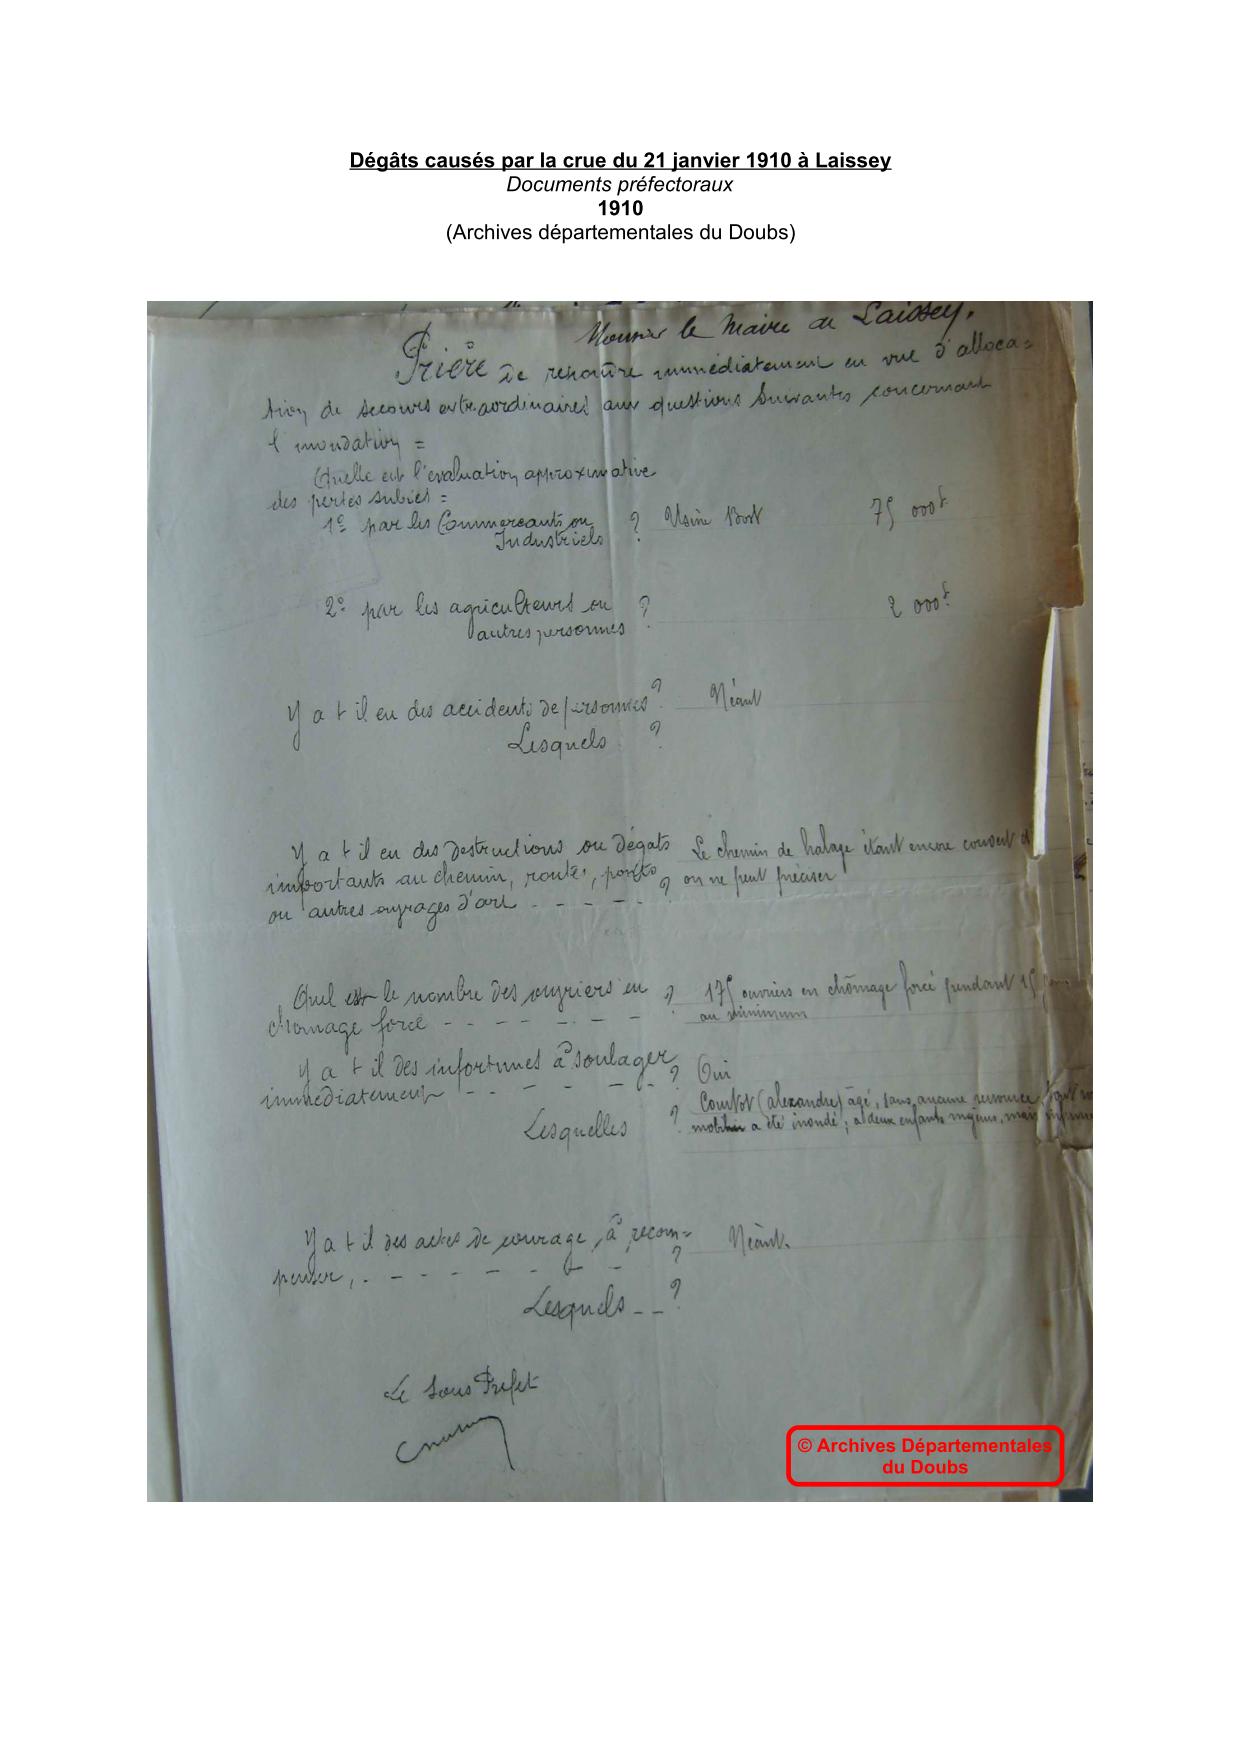 Dégâts causés par la crue du 21 janvier 1910 à Laissey
Documents préfectoraux
1910
(Archives départementales du Doubs)
Monsieur le Maire de Laissey.
Prière de repondre immédiatement en vue d'alloca=
tion de secours extraordinaires aux questions suivantes concernant
l'inondation =
Quelle est l'evaluation approximative
des pertes subies =
1º par les Commerçants ou ? Usine Bost 75 000f
Industriels
2º par les agriculteurs ou ? 2 000f
autres personnes
Y a t il eu des accidents de personnes ? Néant
Lesquels ?
Y a t il eu des destructions ou dégats Le chemin de halage étant encore couvert d
importants au chemin, routes, ponts ? on ne peut préciser
ou autres ouvrages d'art - - - - -
Quel est le nombre des ouvriers en ? 175 ouvriers en chômage forcé pendant 15
chomage forcé - - - - - - - au minimum
Y a t il des infortunes à soulager ? Oui
immédiatement - - - - - - Courtot (alexandre) âgé, sans aucune ressource
Lesquelles ? mobilier a été inondé ; a deux enfants majeurs, mais
Y a t il des actes de courage à recom= Néant.
penser, - - - - - - - ?
Lesquels - - ?
Le Sous Prefet
© Archives Départementales
du Doubs